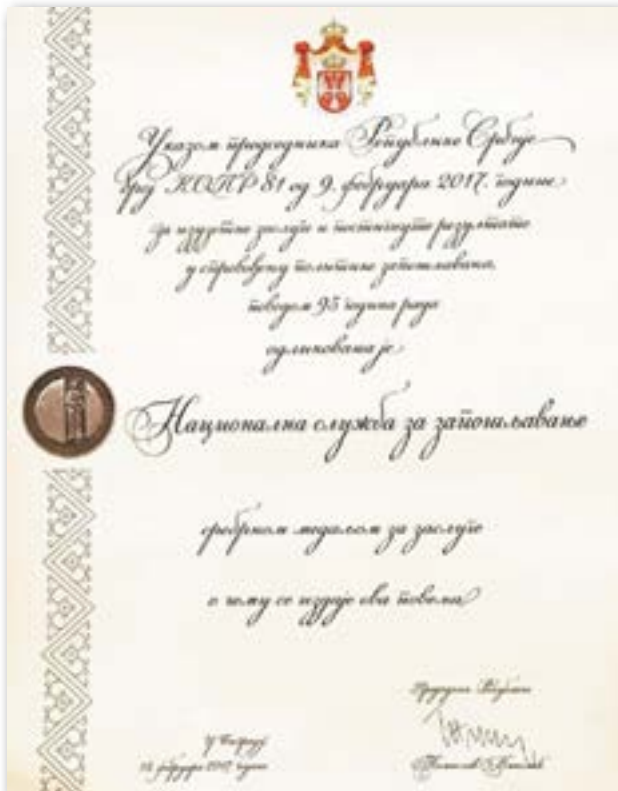 Указом председника Републике Србије
број КОПР 81 од 9. фебруара 2017. године
за изузетне заслуге и постигнуте резултате
у спровођењу политике запошљавања,
поводом 95 година рада
одликована је
Национална служба за запошљавање
сребрном медаљом за заслуге
о чему се издаје ова повеља
Председник Републике
У Београду
фебруара 2017. године
Томислав Николић